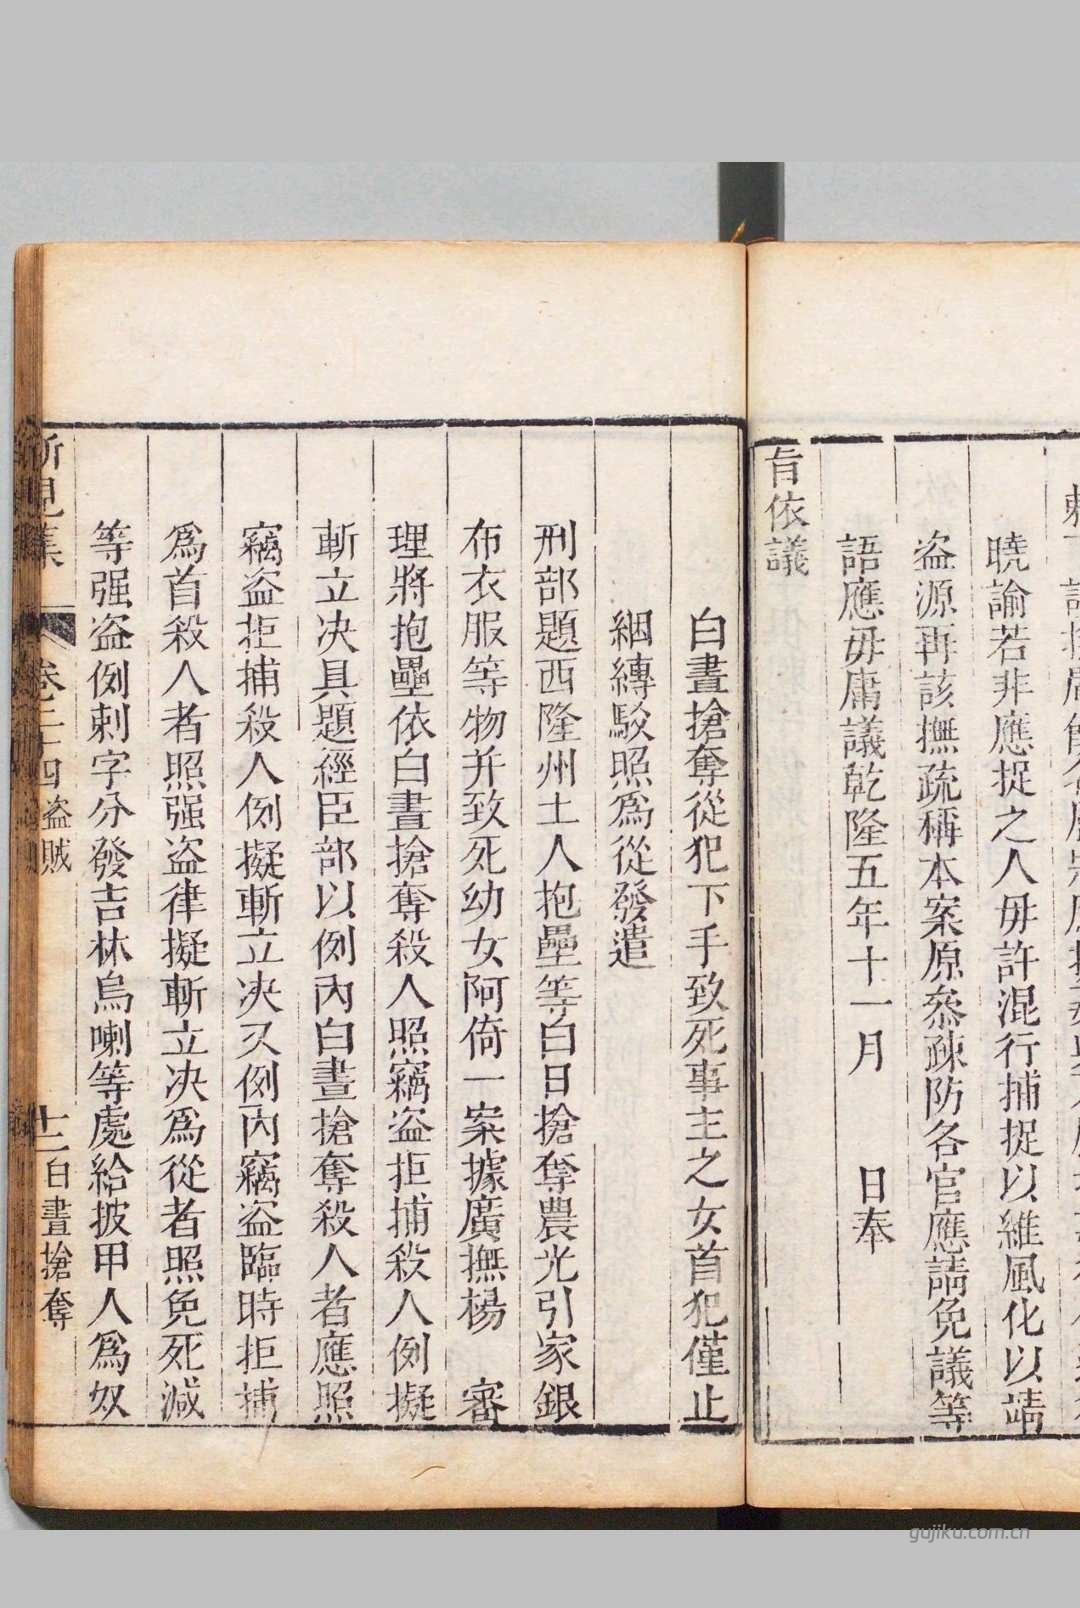 曉諭若非應捉之人毋許混行捕捉以維風化以靖
盗源再該撫疏稱本案原叅疎防各官應請免議等
語應毋庸議乾隆五年十一月　　日奉
旨依議
白晝搶奪從犯下手致死事主之女首犯僅止
綑縳駁照爲從發遣
刑部題西隆州土人抱壘等白日搶奪農光引家銀
布衣服等物并致死幼女阿倚一案據廣撫楊　審
理將抱壘依白晝搶奪殺人照竊盗拒捕殺人例擬
斬立决具題經臣部以例內白晝搶奪殺人者應照
竊盗拒捕殺人例擬斬立决又例內竊盗臨時拒捕
爲首殺人者照强盗律擬斬立决爲從者照免死减
等强盗例刺字分發吉林烏喇等處給披甲人爲奴
所見集　卷二十四盗賊　十二白晝搶奪
gujiku.com.cn